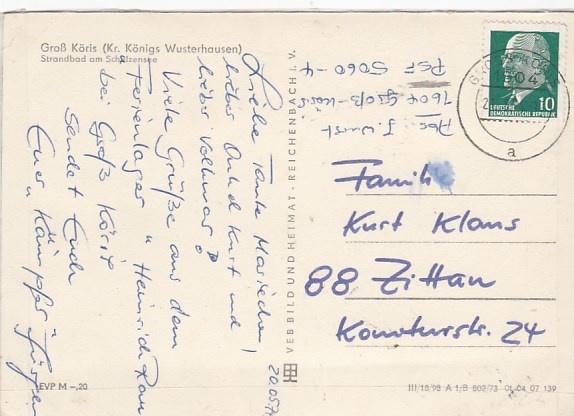 Groß Köris (Kr. Königs Wusterhausen)
Strandbad am Schulzensee
Liebe Tante Mariechen,
lieber Onkel Kurt und
lieber Volkmar!
Viele Grüße aus dem
Ferienlager "Heinrich Rau"
bei Groß Köris
sendet Euch
Euer "Kämpfer" Jürgen
20.05.
EVP M –,20
VEB BILD UND HEIMAT · REICHENBACH i. V.
Abs. J. Wurst
1604 Groß-Köris
PSF 5060-4
1604
a
10
DEUTSCHE
DEMOKRATISCHE REPUBLIK
Familie
Kurt Klaus
88 Zittau
Komturstr. 24
III/18/98 A 1/B 802/73 01 04 07 139